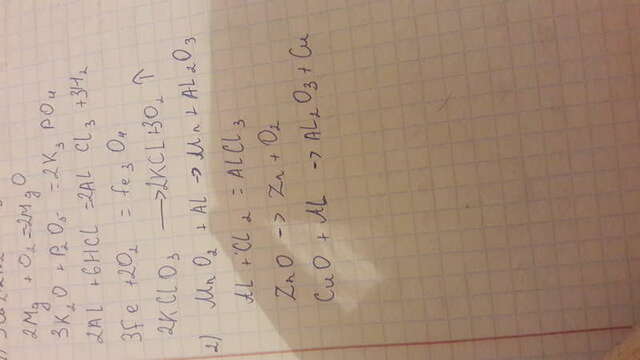 2Mg + O₂ = 2MgO
3K₂O + P₂O₅ = 2K₃PO₄
2Al + 6HCl = 2AlCl₃ + 3H₂
3Fe + 2O₂ = Fe₃O₄
2KClO₃ → 2KCl + 3O₂ ↑
2) MnO₂ + Al → Mn + Al₂O₃
Al + Cl₂ = AlCl₃
ZnO → Zn + O₂
CuO + Al → Al₂O₃ + Cu